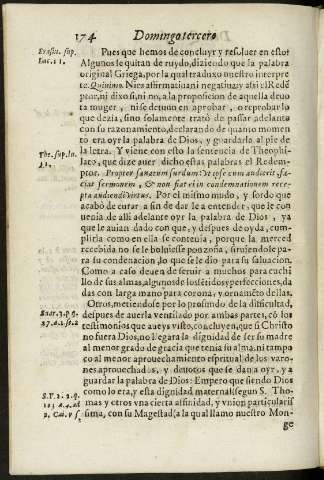 174 Domingo tercero
Erasm. sup.
Luc. 11.
Pues que hemos de concluyr y resoluer en esto?
Algunos se quitan de ruydo, diziendo que la palabra
original Griega, por la qual traduxo nuestro interpre
te. Quinimo. Ni es affirmatiua ni negatiua y assi el Redẽ
ptor, ni dixo si, ni no, a la proposicion de aquella deuo
ta muger, ni se detuuo en aprobar, o reprobar lo
que dezia, sino solamente trató de passar adelante
con su razonamiento, declarando de quanto momen
to era oyr la palabra de Dios, y guardarlo al pie de
la letra. Y viene con esto la sentencia de Theophi-
The. sup. in.
lato, que dize auer dicho estas palabras el Redem-
ptor. Propter sanatum surdum: Ut ipse cum audierit, fa-
ciat sermonem, & non fiat ei in condemnationem rece-
pta audiendi virtus. Por el mismo mudo, y sordo que
acabó de curar, a fin de darle a entender, que le con
uenia de alli adelante oyr la palabra de Dios, ya
que le auian dado con que, y despues de oyda, cum-
plirla como en ella se contenia, porque la merced
recebida no se le boluiesse ponzoña, siruiendole pa-
ra su condenacion, lo que se dio para su saluacion.
Como a caso deuen de seruir a muchos para cuchi
llo de sus almas, algunos de los sẽtidos y perfecciones, da
das con larga mano para corona, y ornamẽto dellas.
Otros, metiendose por lo profundo de la dificultad,
Suar. 3. p. q.
despues de auerla ventilado por ambas partes, cõ los
testimonios que aueys visto, concluyen, que si Christo
no fuera Dios, no llegara la dignidad de ser su madre
al menor grado de gracia que tenia su alma, ni tampo
co al menor aprouechamiento espiritual, de los varo-
nes aprouechados, y deuotos que se dan a oyr, y a
guardar la palabra de Dios: Empero que siendo Dios
S. T. 2. 2. q.
como lo era, y esta dignidad maternal (segun S. Tho-
mas y otros vna cierta affinidad, y vnion particularis
sima, con su Magestad (a la qual llamo nuestro Mon-
ge